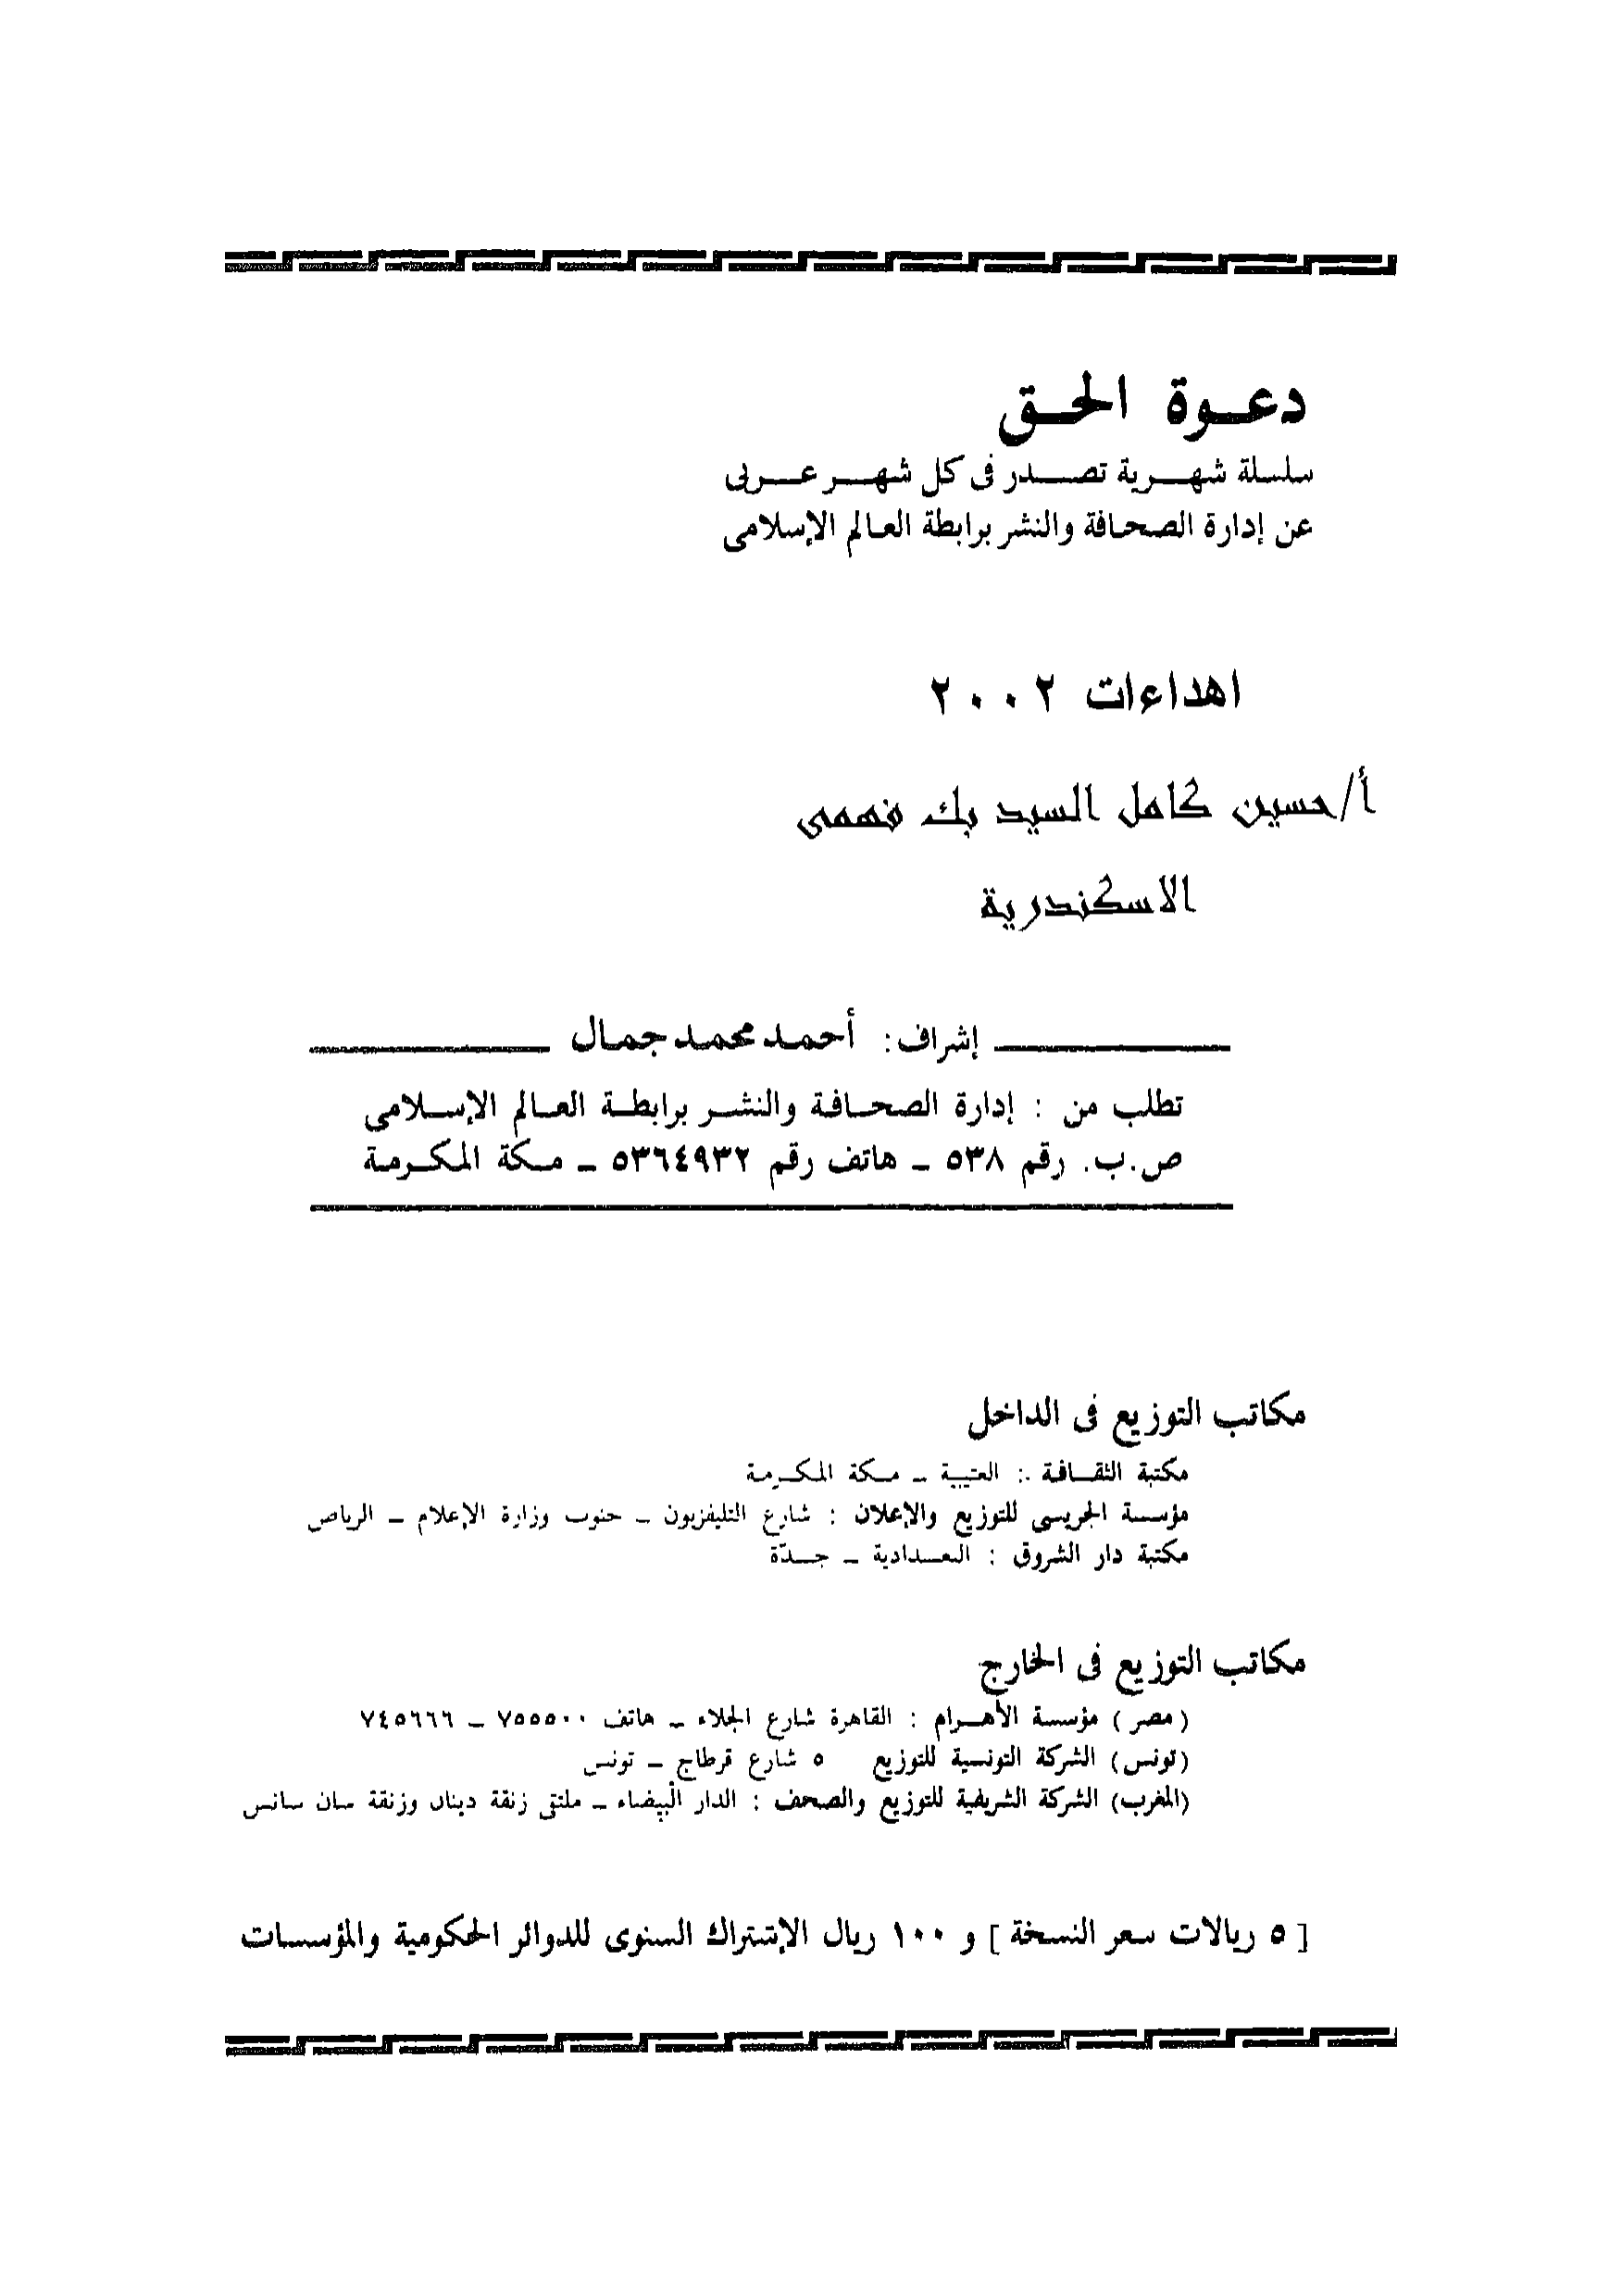 دعوة الحق
سلسلة شهرية تصدر فى كل شهر عربى
عن إدارة الصحافة والنشر برابطة العالم الإسلامى
اهداءات ٢٠٠٢
أ/حسين كامل السيد بك فهمى
الاسكندرية
إشراف: أحمد محمد جمال
تطلب من : إدارة الصحافة والنشر برابطة العالم الإسلامى
ص.ب. رقم ٥٣٨ ـ هاتف رقم ٥٣٦٤٩٣٢ ـ مكة المكرمة
مكاتب التوزيع فى الداخل
مكتبة الثقافة : العتيبية ـ مكة المكرمة
مؤسسة الجريسى للتوزيع والإعلان : شارع التليفزيون ـ جنوب وزارة الإعلام ـ الرياض
مكتبة دار الشروق : البغدادية ـ جدّة
مكاتب التوزيع فى الخارج
(مصر) مؤسسة الأهرام : القاهرة شارع الجلاء ـ هاتف ٧٥٥٥٠٠ ـ ٧٤٥٦٦٦
(تونس) الشركة التونسية للتوزيع ٥ شارع قرطاج ـ تونس
(المغرب) الشركة الشريفية للتوزيع والصحف : الدار البيضاء ـ ملتقى زنقة دينان وزنقة سان سانس
[ ٥ ريالات سعر النسخة ] و ١٠٠ ريال الإشتراك السنوى للدوائر الحكومية والمؤسسات